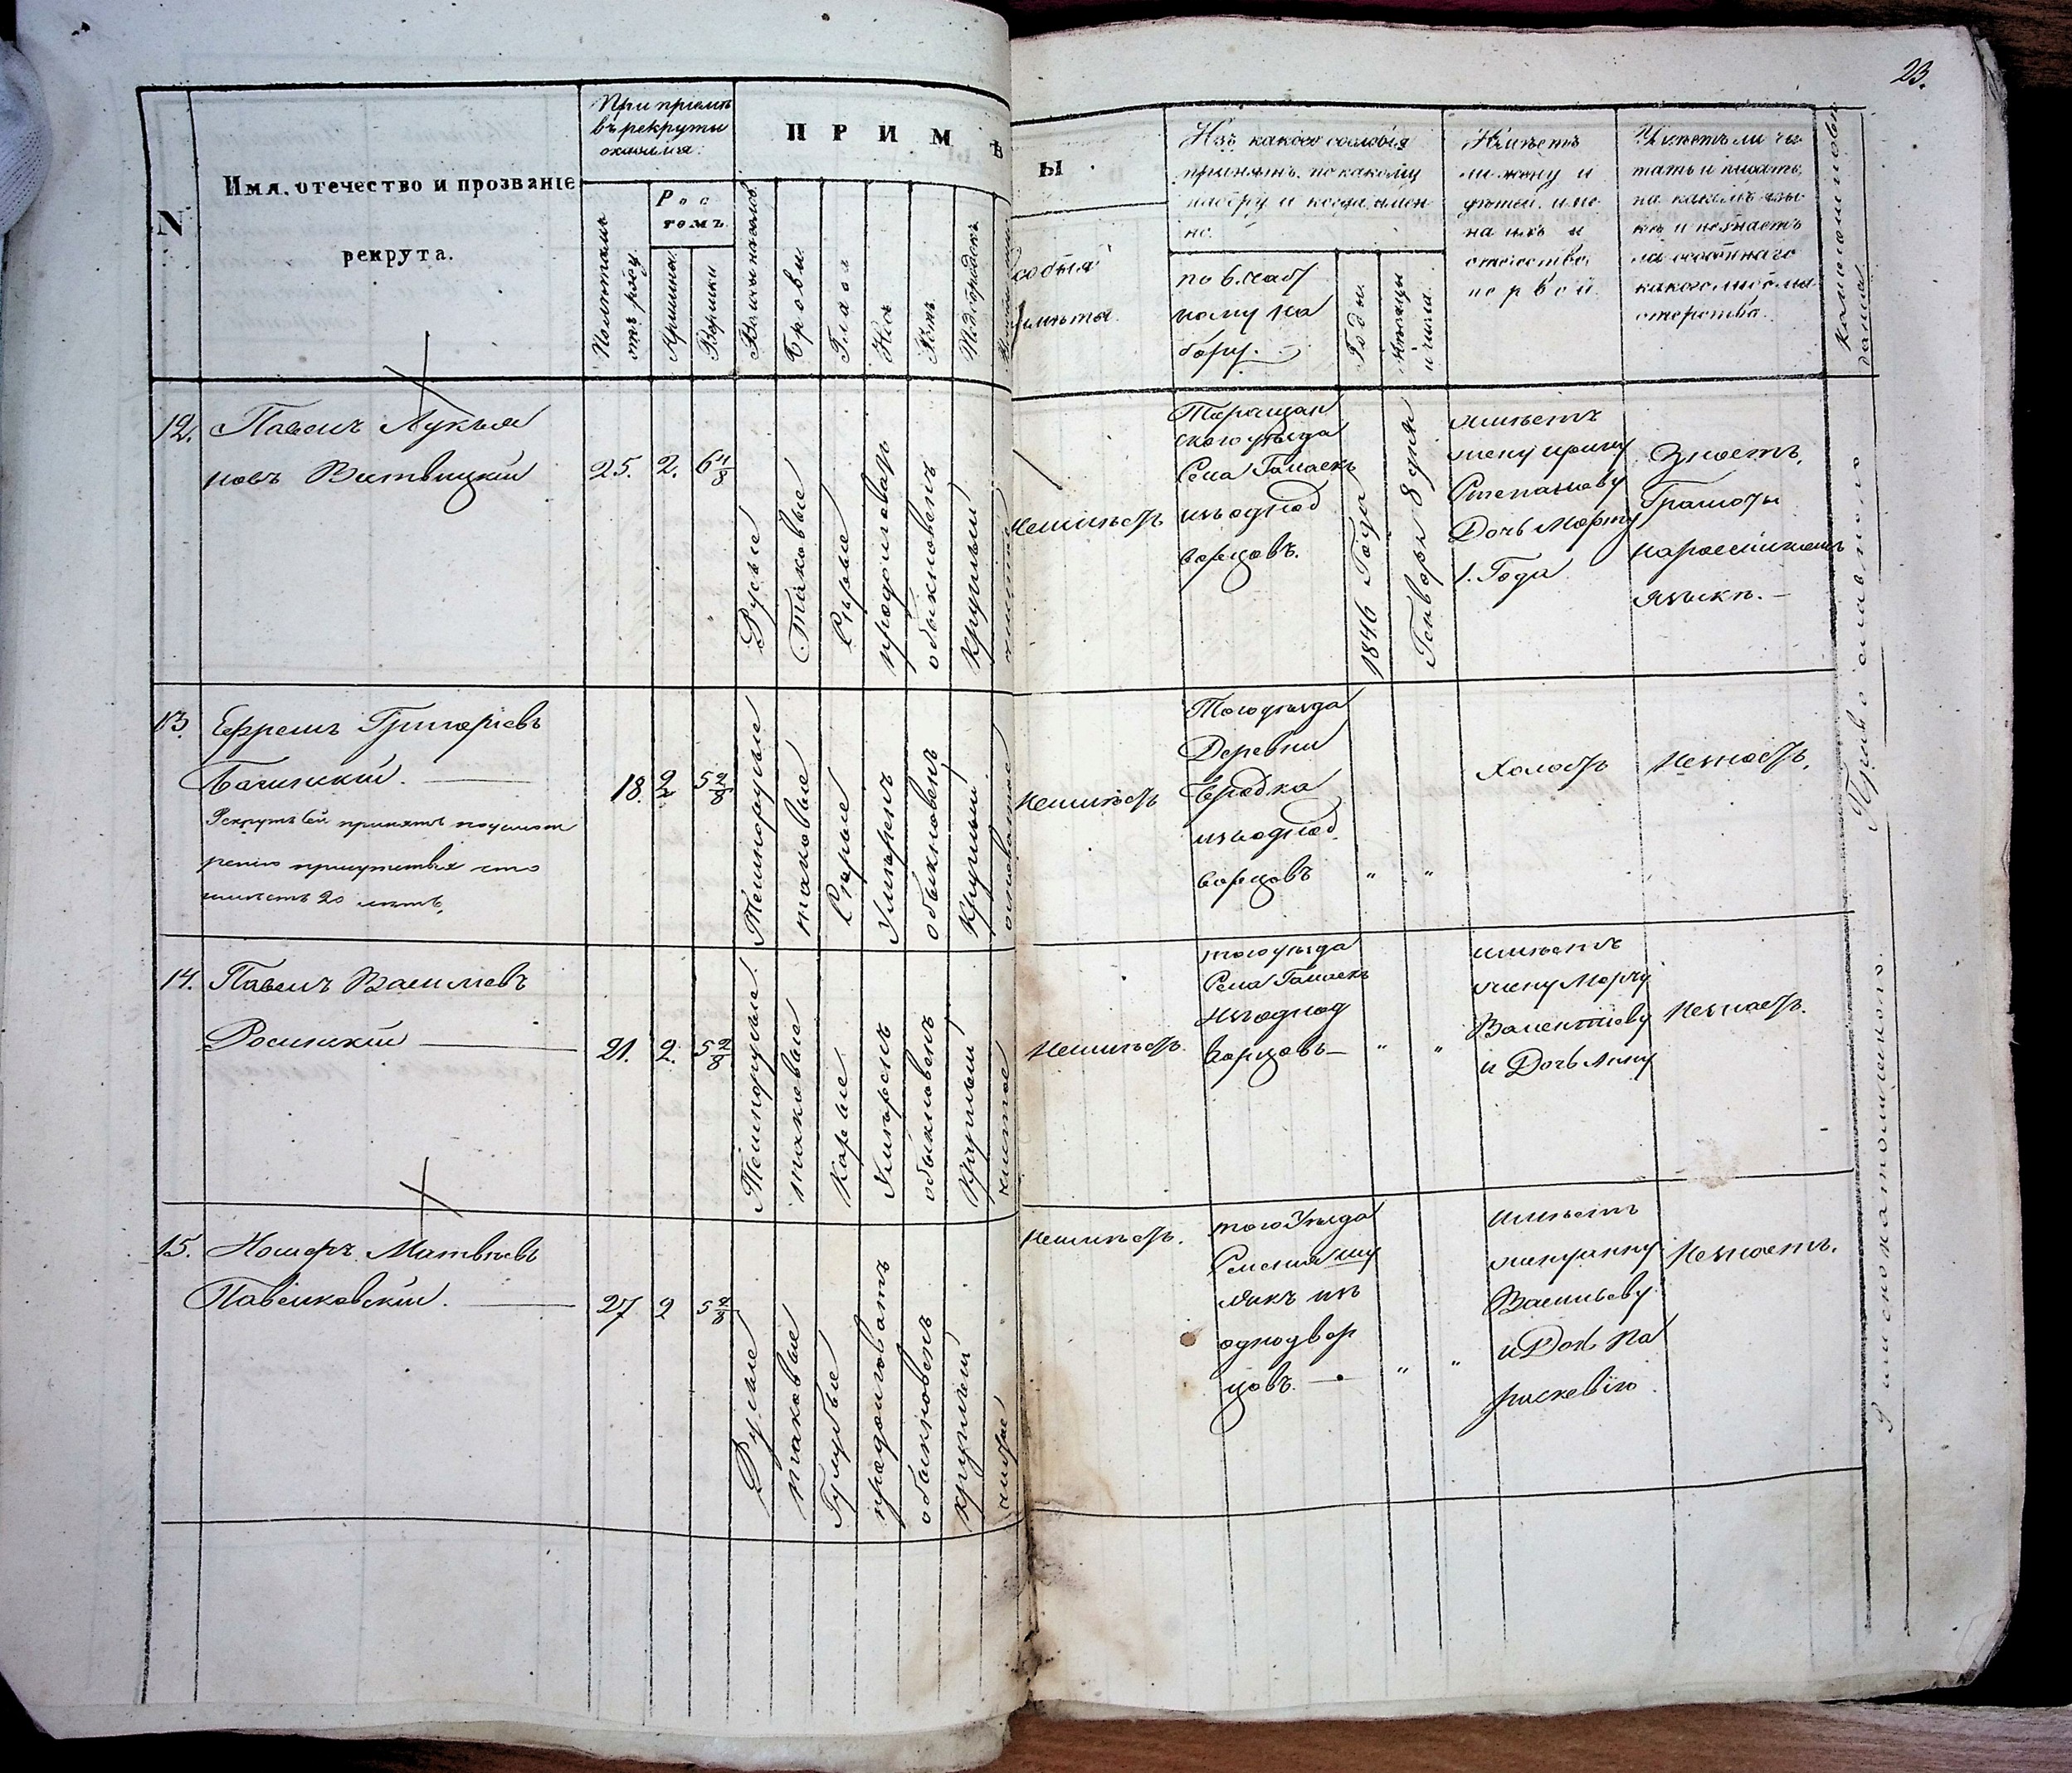 23.
N
Имя, отечество и прозваніе
рекрута.
При пріемѣ
въ рекруты
оказался:
Полѣтамъ
отъ роду
Рос
томъ
Аршины
Вершки
П Р И М Ѣ
Т Ы
Волосы на головѣ
Брови
Глаза
Носъ
Ротъ
Подбородокъ
особыя
примѣты
Изъ какого сословія
принятъ, по какому
набору и когда имен
но.
по 6. част
ному на
бору.
Годы.
Мѣсяцы
и числа.
Имѣетъ
ли жену и
дѣтей, име
на ихъ и
отечество
первой
Умѣетъ ли чи
тать и писать,
на какомъ язы
кѣ и не знаетъ
ли особеннаго
какого либо ма
стерства.
12.
Павелъ Лукья
новъ Витвицкій
25. 2. 6 4/8
Русые
Таковые
Сѣрые
продолговатъ
обыкновенъ
круглый
чистое
Неимѣетъ
Таращан
ского уѣзда
Села
изъ однод
ворцовъ.
1846 Года
Генваря 8 дня
имѣетъ
жену Ирину
Степанову
Дочь Марту
1. Года
Знаетъ
Грамоты
на россійскомъ
языкѣ. —
13.
Ефремъ Григорьевъ
Бачинскій.
Рекрутъ сей принятъ по усмот
рѣнію присутствія что
имѣетъ 20 лѣтъ.
18. 2 5 2/8
Темнорусые
таковые
Сѣрые
Умѣренъ
обыкновенъ
Круглый
Неимѣетъ
Того уѣзда
Деревни
изъ однод
ворцовъ
" "
Холостъ
Незнаетъ.
14.
Павелъ Васильевъ
Росинскій
21. 2. 5 2/8
Темнорусые
таковые
Карые
Умѣренъ
обыкновенъ
Круглый
чистое
Неимѣетъ.
того уѣзда
Села
Изъ однод
ворцовъ —
" "
имѣетъ
жену Марту
Валентіеву
и Дочь Анну
Незнаетъ.
15.
Номеръ Матвѣевъ
Павелковскій.
27 2 5 2/8
Русые
таковые
Голубые
продолговатъ
обыкновенъ
круглый
чистое
Неимѣетъ.
того Уѣзда
изъ
однодвор
цовъ. —
" "
Имѣетъ
жену Анну
Васильеву
и Дочь Па
раскевію.
Незнаетъ.
Православного
Римскокатолического.